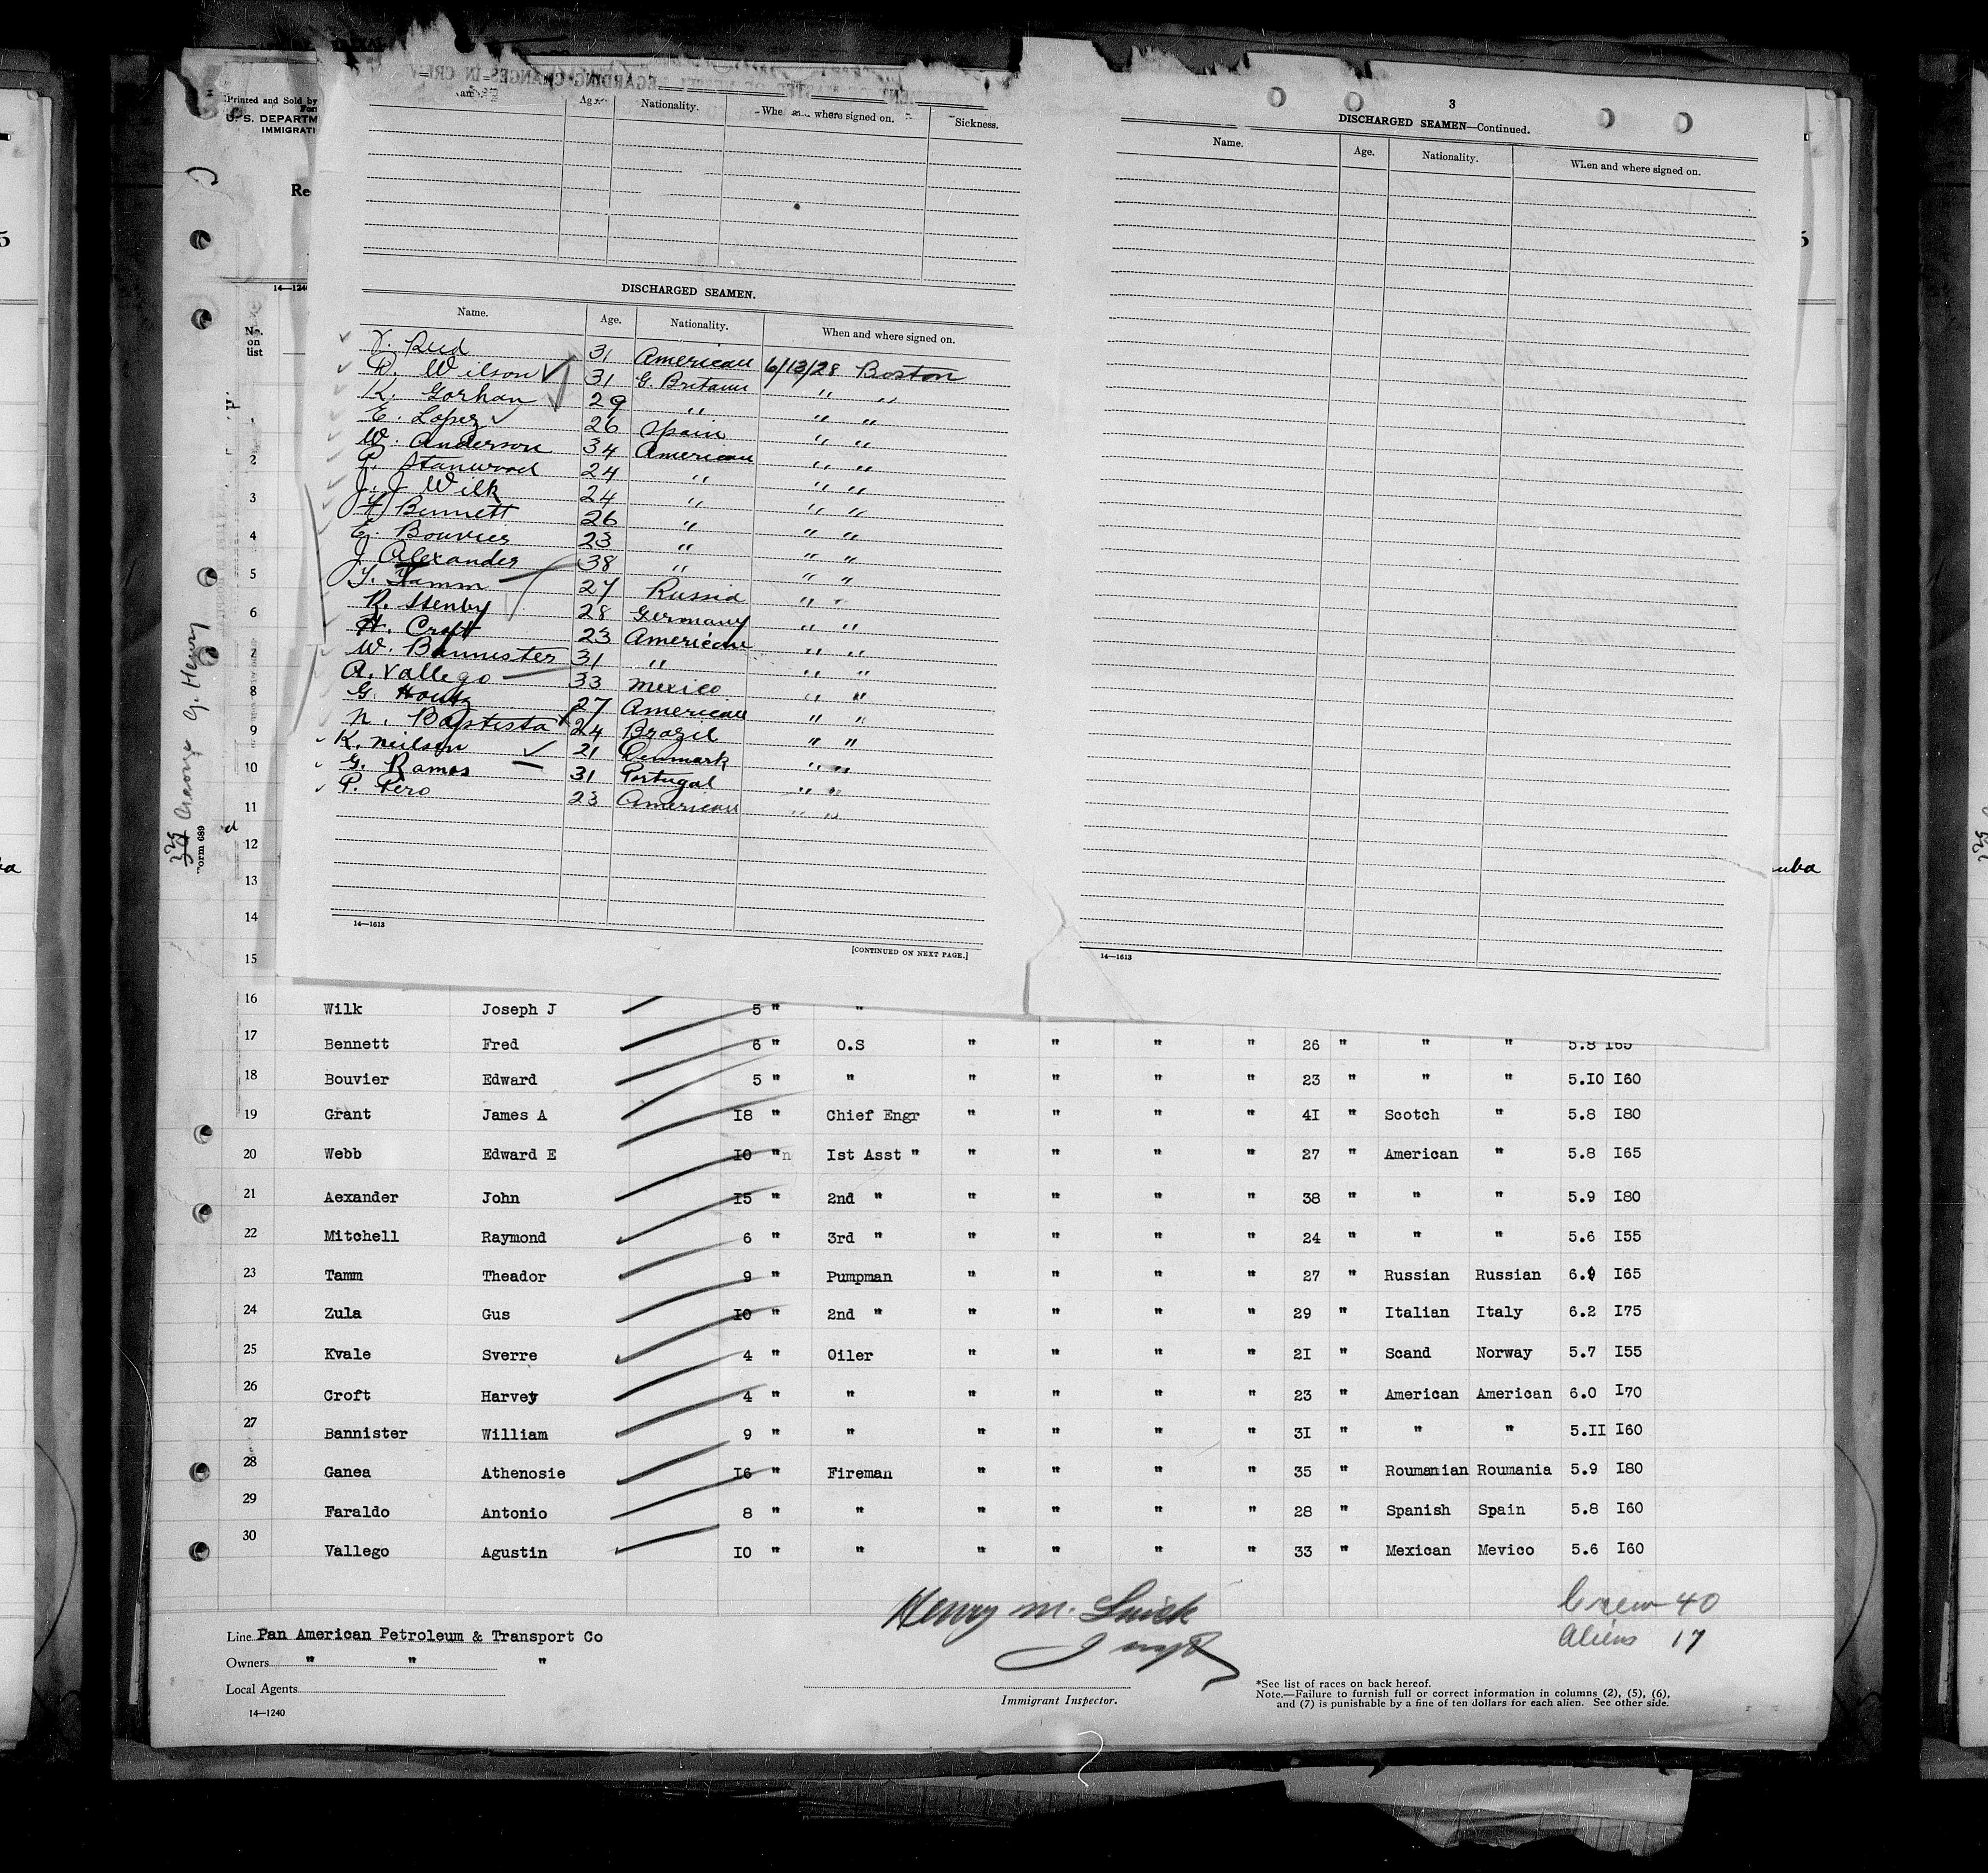 Printed and Sold by
U. S. DEPARTM
IMMIGRATI
Re
14—1240
No.
on
list
Age
Nationality.
where signed on.
Sickness.
DISCHARGED SEAMEN.
Name. Age. Nationality. When and where signed on.
Reid 31 American 6/13/28 Boston
Wilson 31 G. Britain " "
K. Gorhan 29 " " "
E. Lopez 26 Spain " "
W. Anderson 34 American " "
P. Stanwood 24 " " "
J. J Wilk 24 " " "
F Bennett 26 " " "
E. Bouvier 23 " " "
J Alexander 38 " " "
T. Tamm 27 Russia " "
R. Stenby 28 Germany " "
H. Croft 23 American " "
W. Bannister 31 " " "
A. Vallego 33 Mexico " "
G. Houtz 27 American " "
N. Baptista 24 Brazil " "
K. Neilson 21 Denmark " "
G. Ramos 31 Portugal " "
P. Pero 23 American " "
14—1613
[CONTINUED ON NEXT PAGE.]
3
DISCHARGED SEAMEN—Continued.
Name. Age. Nationality. When and where signed on.
14—1613
George G. Henry
orm 689
uba
1
2
3
4
5
6
7
8
9
10
11
12
13
14
15
16 Wilk Joseph J 5 " "
17 Bennett Fred 6 " O.S " " " " 26 " " " 5.8 I65
18 Bouvier Edward 5 " " " " " " 23 " " " 5.IO I60
19 Grant James A I8 " Chief Engr " " " " 4I " Scotch " 5.8 I80
20 Webb Edward E IO " Ist Asst " " " " " 27 " American " 5.8 I65
21 Aexander John I5 " 2nd " " " " " 38 " " " 5.9 I80
22 Mitchell Raymond 6 " 3rd " " " " " 24 " " " 5.6 I55
23 Tamm Theador 9 " Pumpman " " " " 27 " Russian Russian 6.0 I65
24 Zula Gus IO " 2nd " " " " " 29 " Italian Italy 6.2 I75
25 Kvale Sverre 4 " Oiler " " " " 2I " Scand Norway 5.7 I55
26 Croft Harvey 4 " " " " " " 23 " American American 6.0 I70
27 Bannister William 9 " " " " " " 3I " " " 5.II I60
28 Ganea Athenosie I6 " Fireman " " " " 35 " Roumanian Roumania 5.9 I80
29 Faraldo Antonio 8 " " " " " " 28 " Spanish Spain 5.8 I60
30 Vallego Agustin IO " " " " " " 33 " Mexican Mevico 5.6 I60
Crew 40
Aliens 17
Line Pan American Petroleum & Transport Co
Owners " " "
Local Agents
14—1240
Henry M.
Immigrant Inspector.
*See list of races on back hereof.
Note.—Failure to furnish full or correct information in columns (2), (5), (6),
and (7) is punishable by a fine of ten dollars for each alien. See other side.